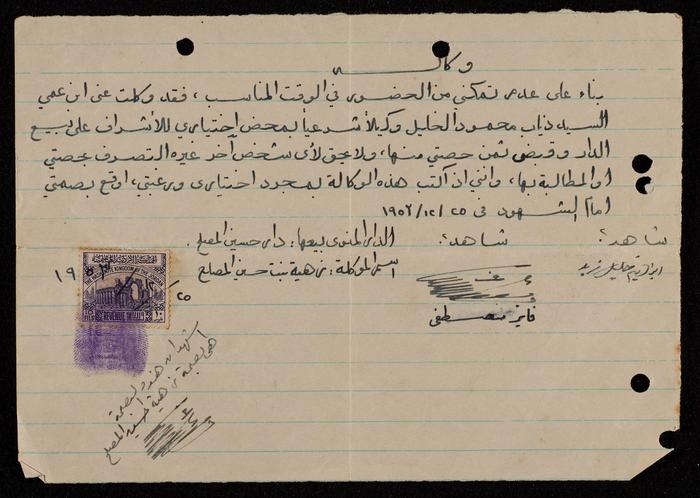 وكالة
بناء على عدم تمكني من الحضور في الوقت المناسب ، فقد وكلت عني ابن عمي
السيد ذياب محمود الخليل وكيلاً شرعياً بمحض إختياري للأشراف على بيع
الدار وقبض ثمن حصتي منها، ولا يحق لأي شخص آخر غيره التصرف بحصتي
او المطالبة بها، وانني اذ اكتب هذه الوكالة بمجرد اختياري ورغبتي، اوقع بصمتي
امام الشهود في ٢٥/١٢/١٩٥٢
الدار المنوى بيعها: دار حسين المصلح . شاهد: شاهد:
اسم الموكلة: نزهية بنت حسين المصلح ابراهيم خليل
فايز مصطفى
THE HASHEMITE KINGDOM OF THE JORDAN
REVENUE
٢٥
شهد ان هذه البصمة
هي بصمة نزهية حسين المصلح